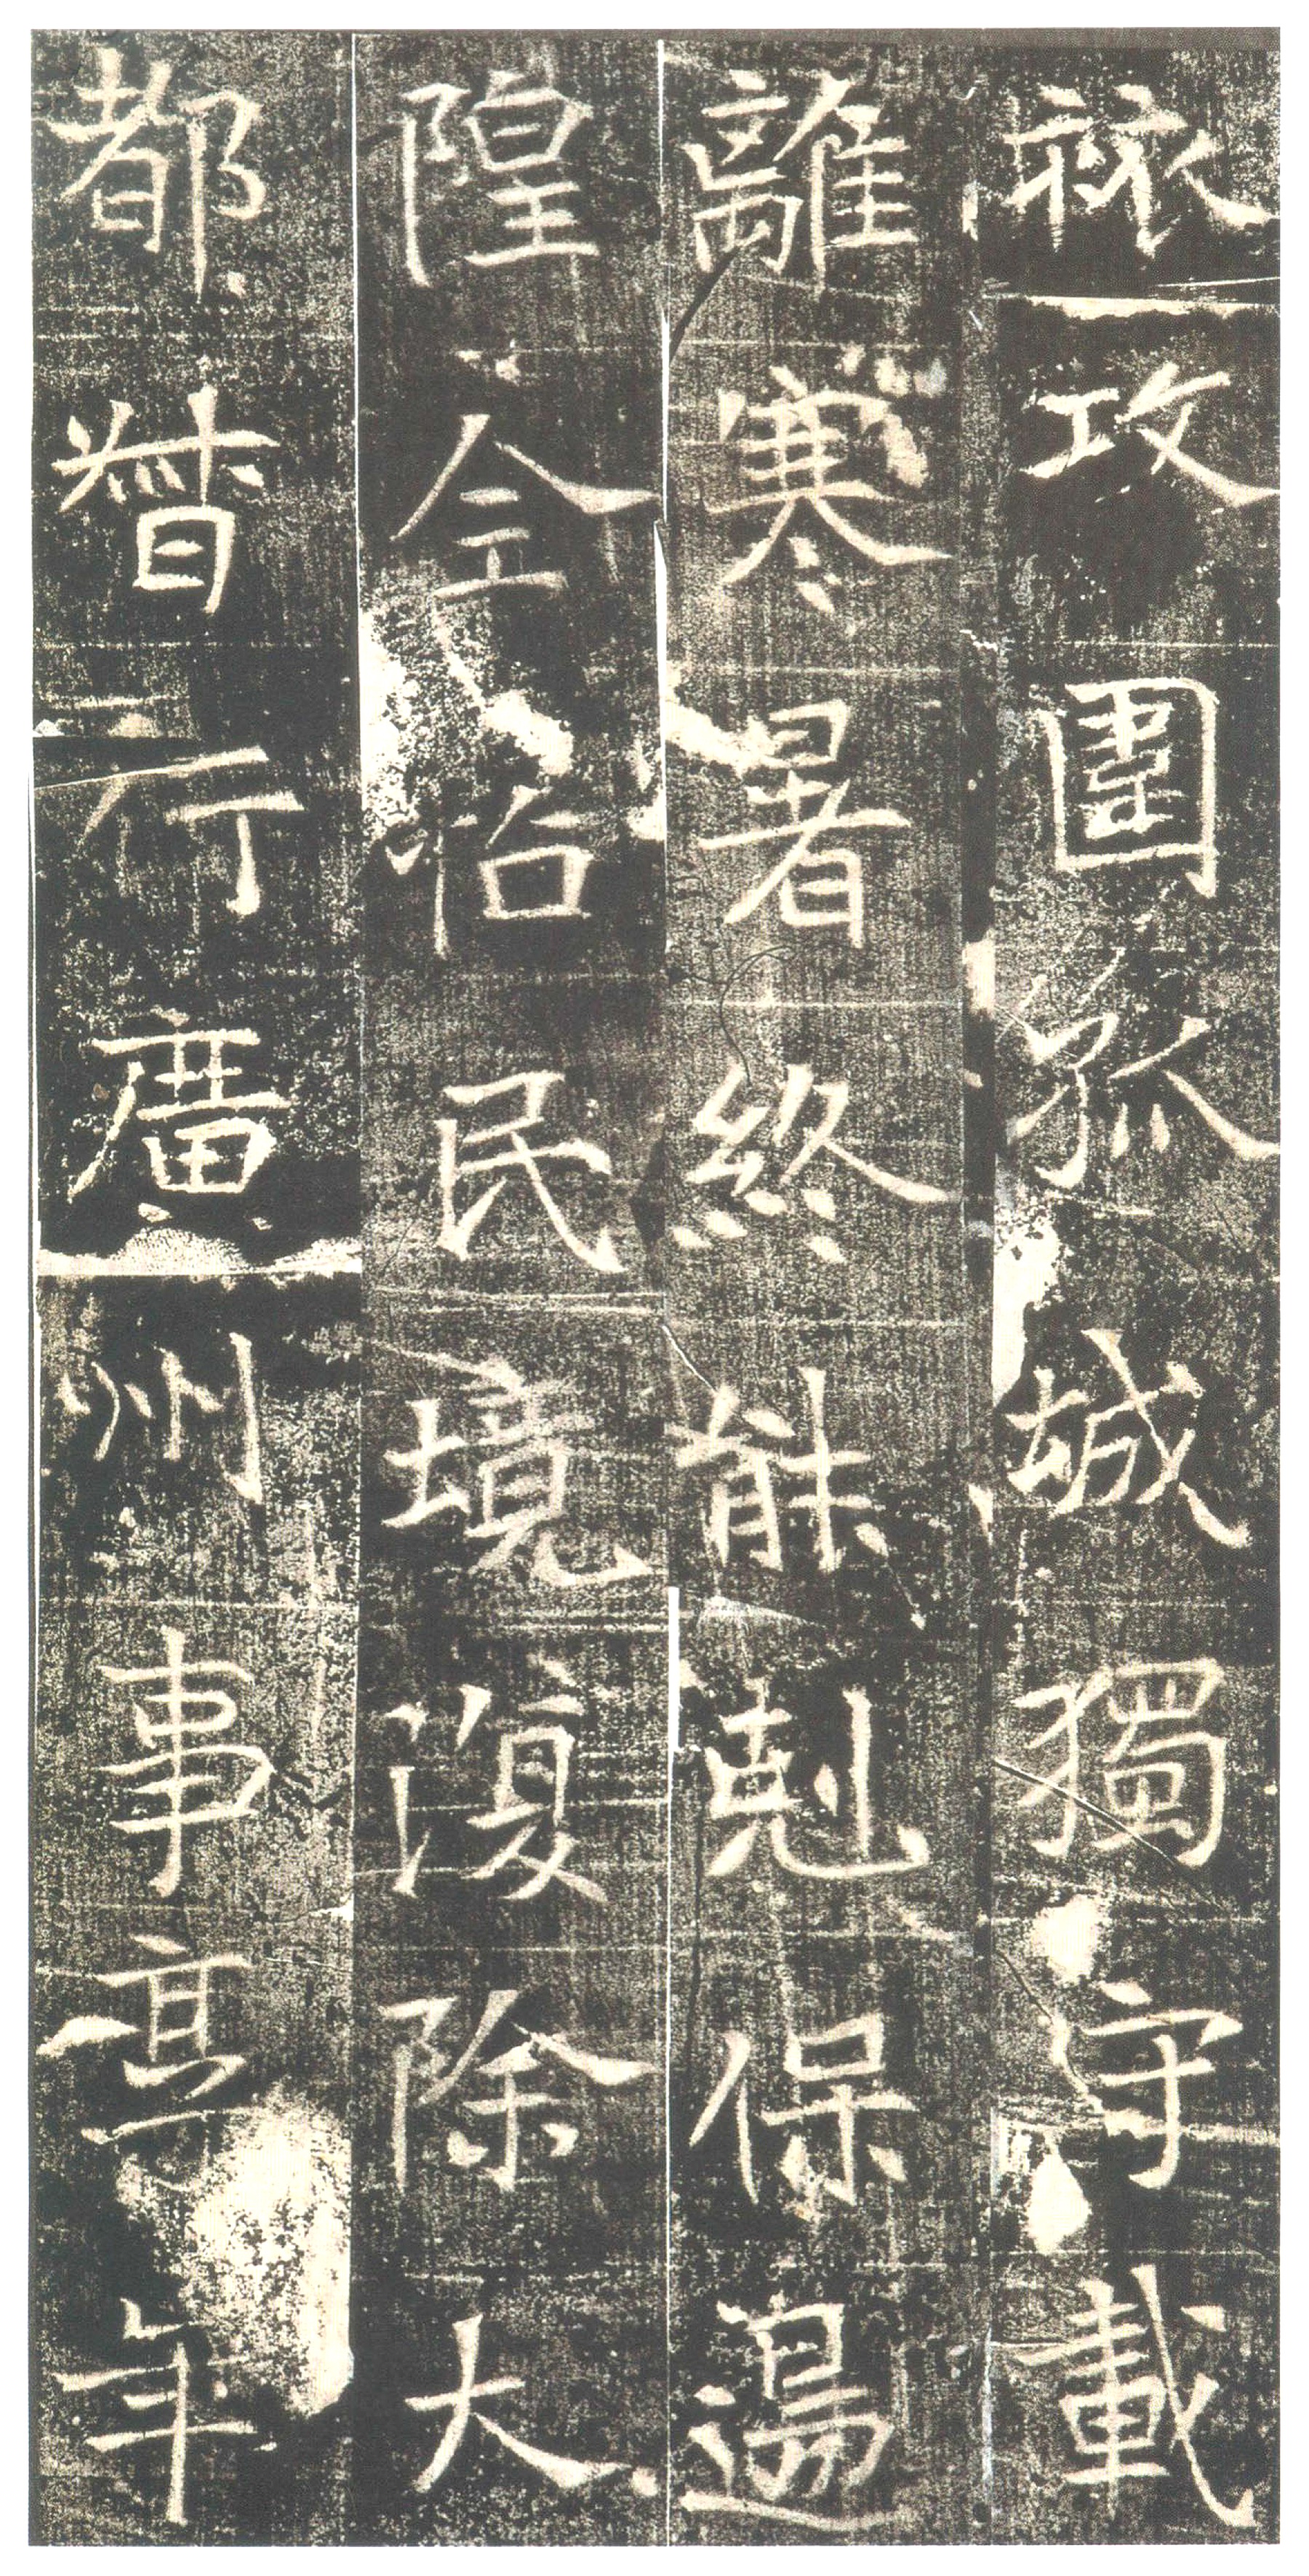 攻圍孤城獨守載
離寒暑終能剋保邊
隍全怗民境復除大
都督行廣州事享年